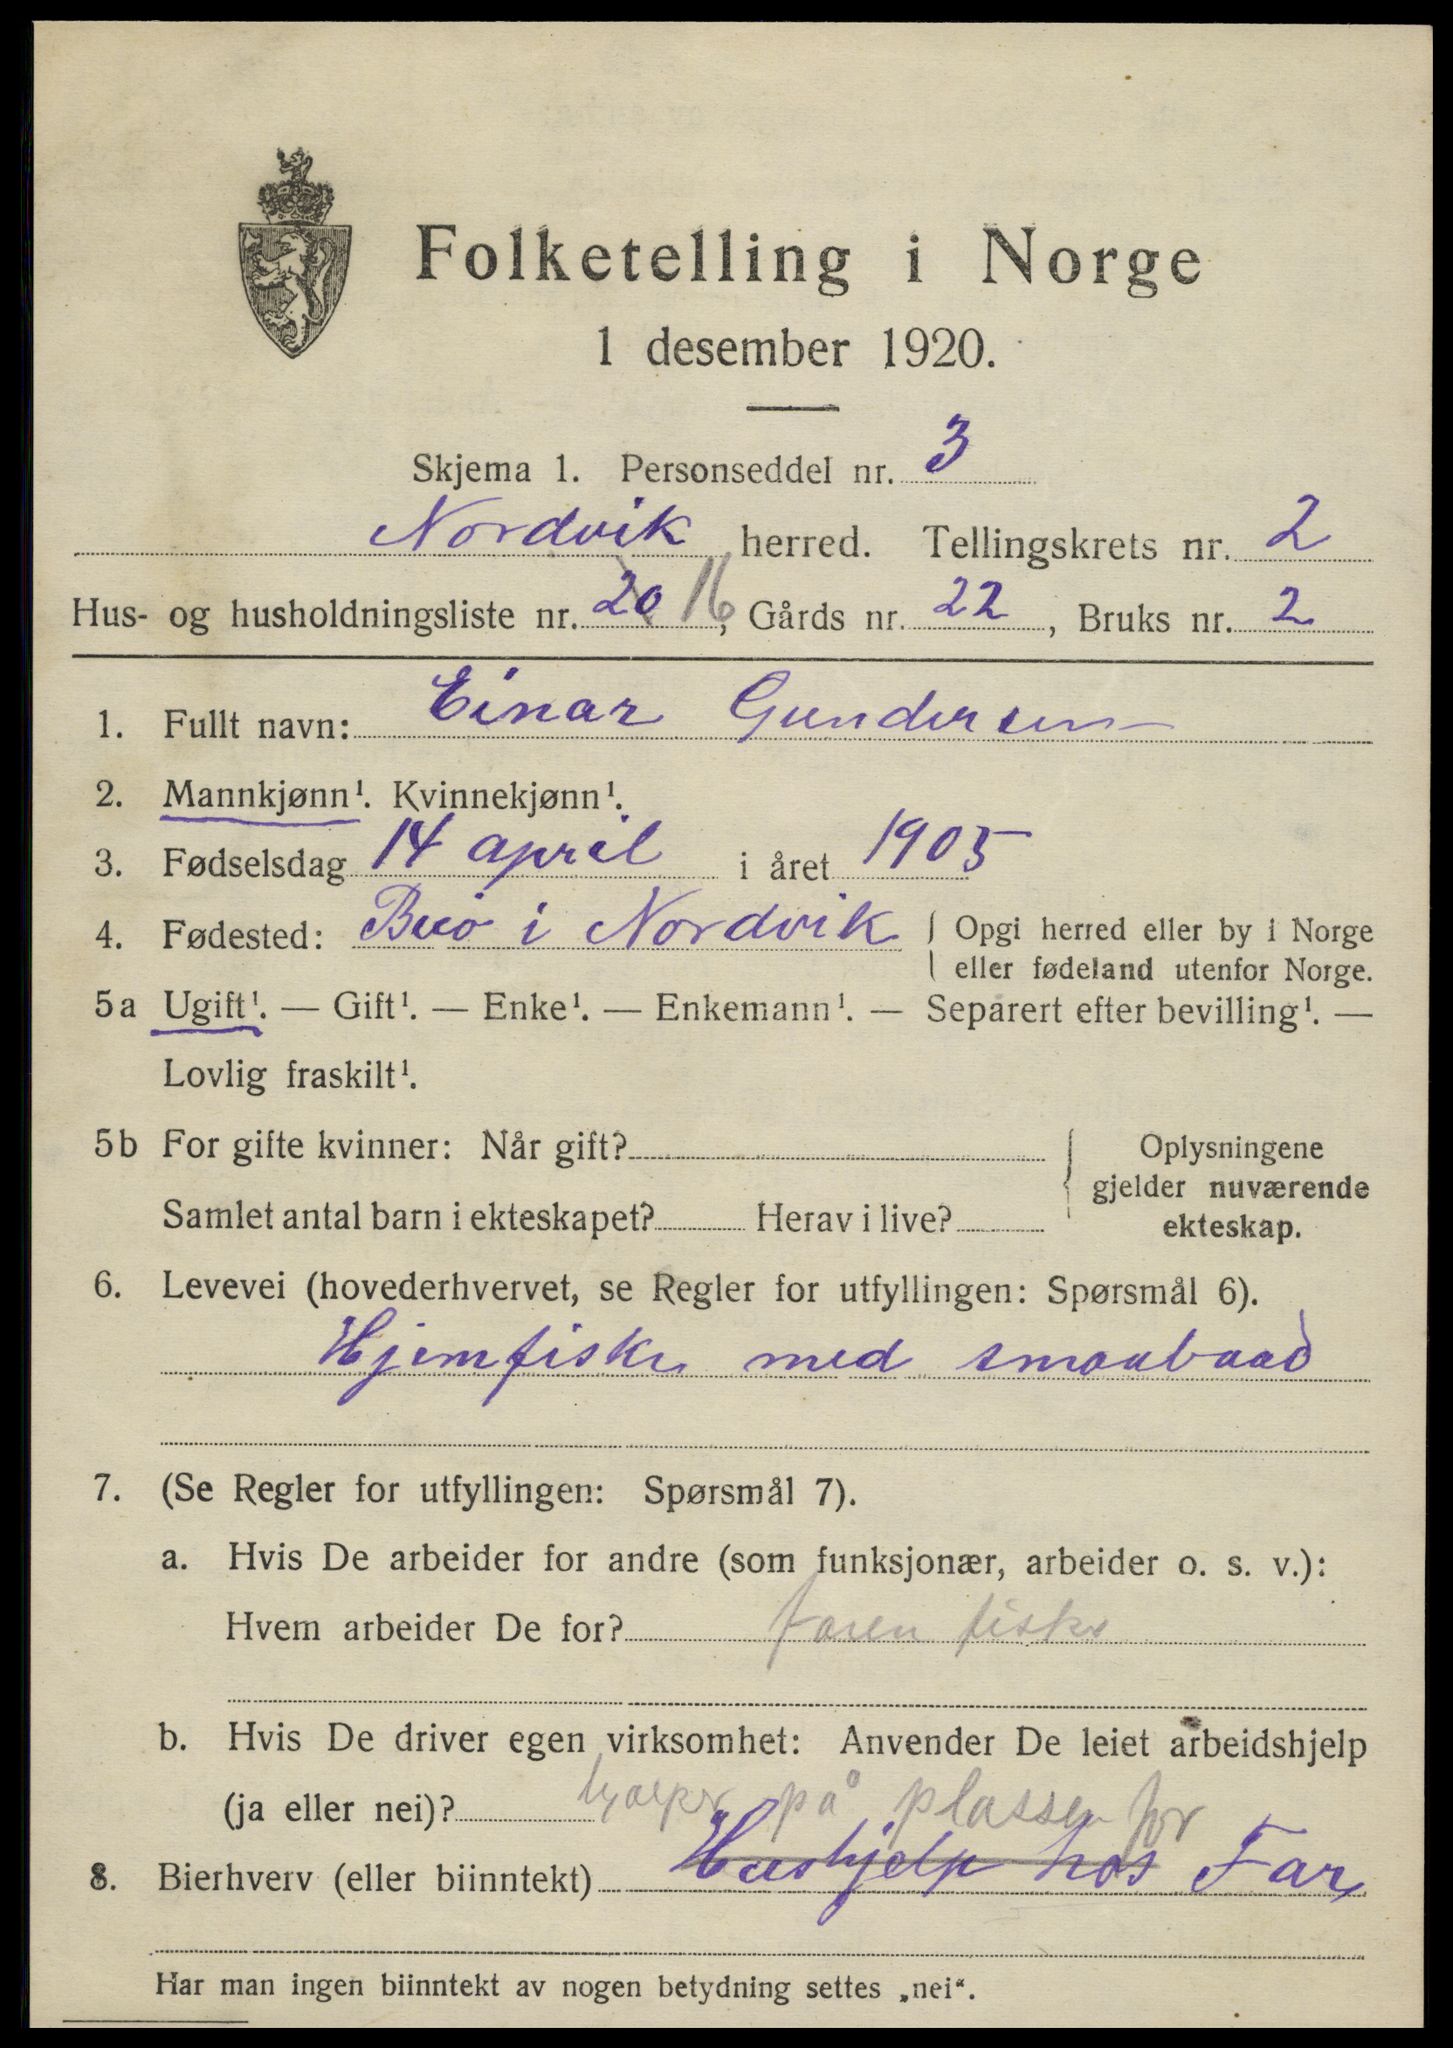 Folketelling i Norge
1 desember 1920.
Skjema 1. Personseddel nr. 3
Nordvik herred. Tellingskrets nr. 2
Hus- og husholdningsliste nr. 20 16, Gårds nr. 22, Bruks nr. 2
1. Fullt navn: Einar Gundersen
2. Mannkjønn¹. Kvinnekjønn¹.
3. Fødselsdag 14 april i året 1905
4. Fødested: i Nordvik { Opgi herred eller by i Norge
eller fødeland utenfor Norge.
5a Ugift¹. — Gift¹. — Enke¹. — Enkemann¹. — Separert efter bevilling¹. —
Lovlig fraskilt¹.
5b For gifte kvinner: Når gift? { Oplysningene
gjelder nuværende
Samlet antal barn i ekteskapet? Herav i live?
ekteskap.
6. Levevei (hovederhvervet, se Regler for utfyllingen: Spørsmål 6).
Hjemfiske med smaabaad
7. (Se Regler for utfyllingen: Spørsmål 7).
a. Hvis De arbeider for andre (som funksjonær, arbeider o. s. v.):
Hvem arbeider De for? faren fisker
b. Hvis De driver egen virksomhet: Anvender De leiet arbeidshjelp
(ja eller nei)? hjælper på plassen for
8. Bierhverv (eller biinntekt) Hushjelp hos Far
Har man ingen biinntekt av nogen betydning settes „nei“.